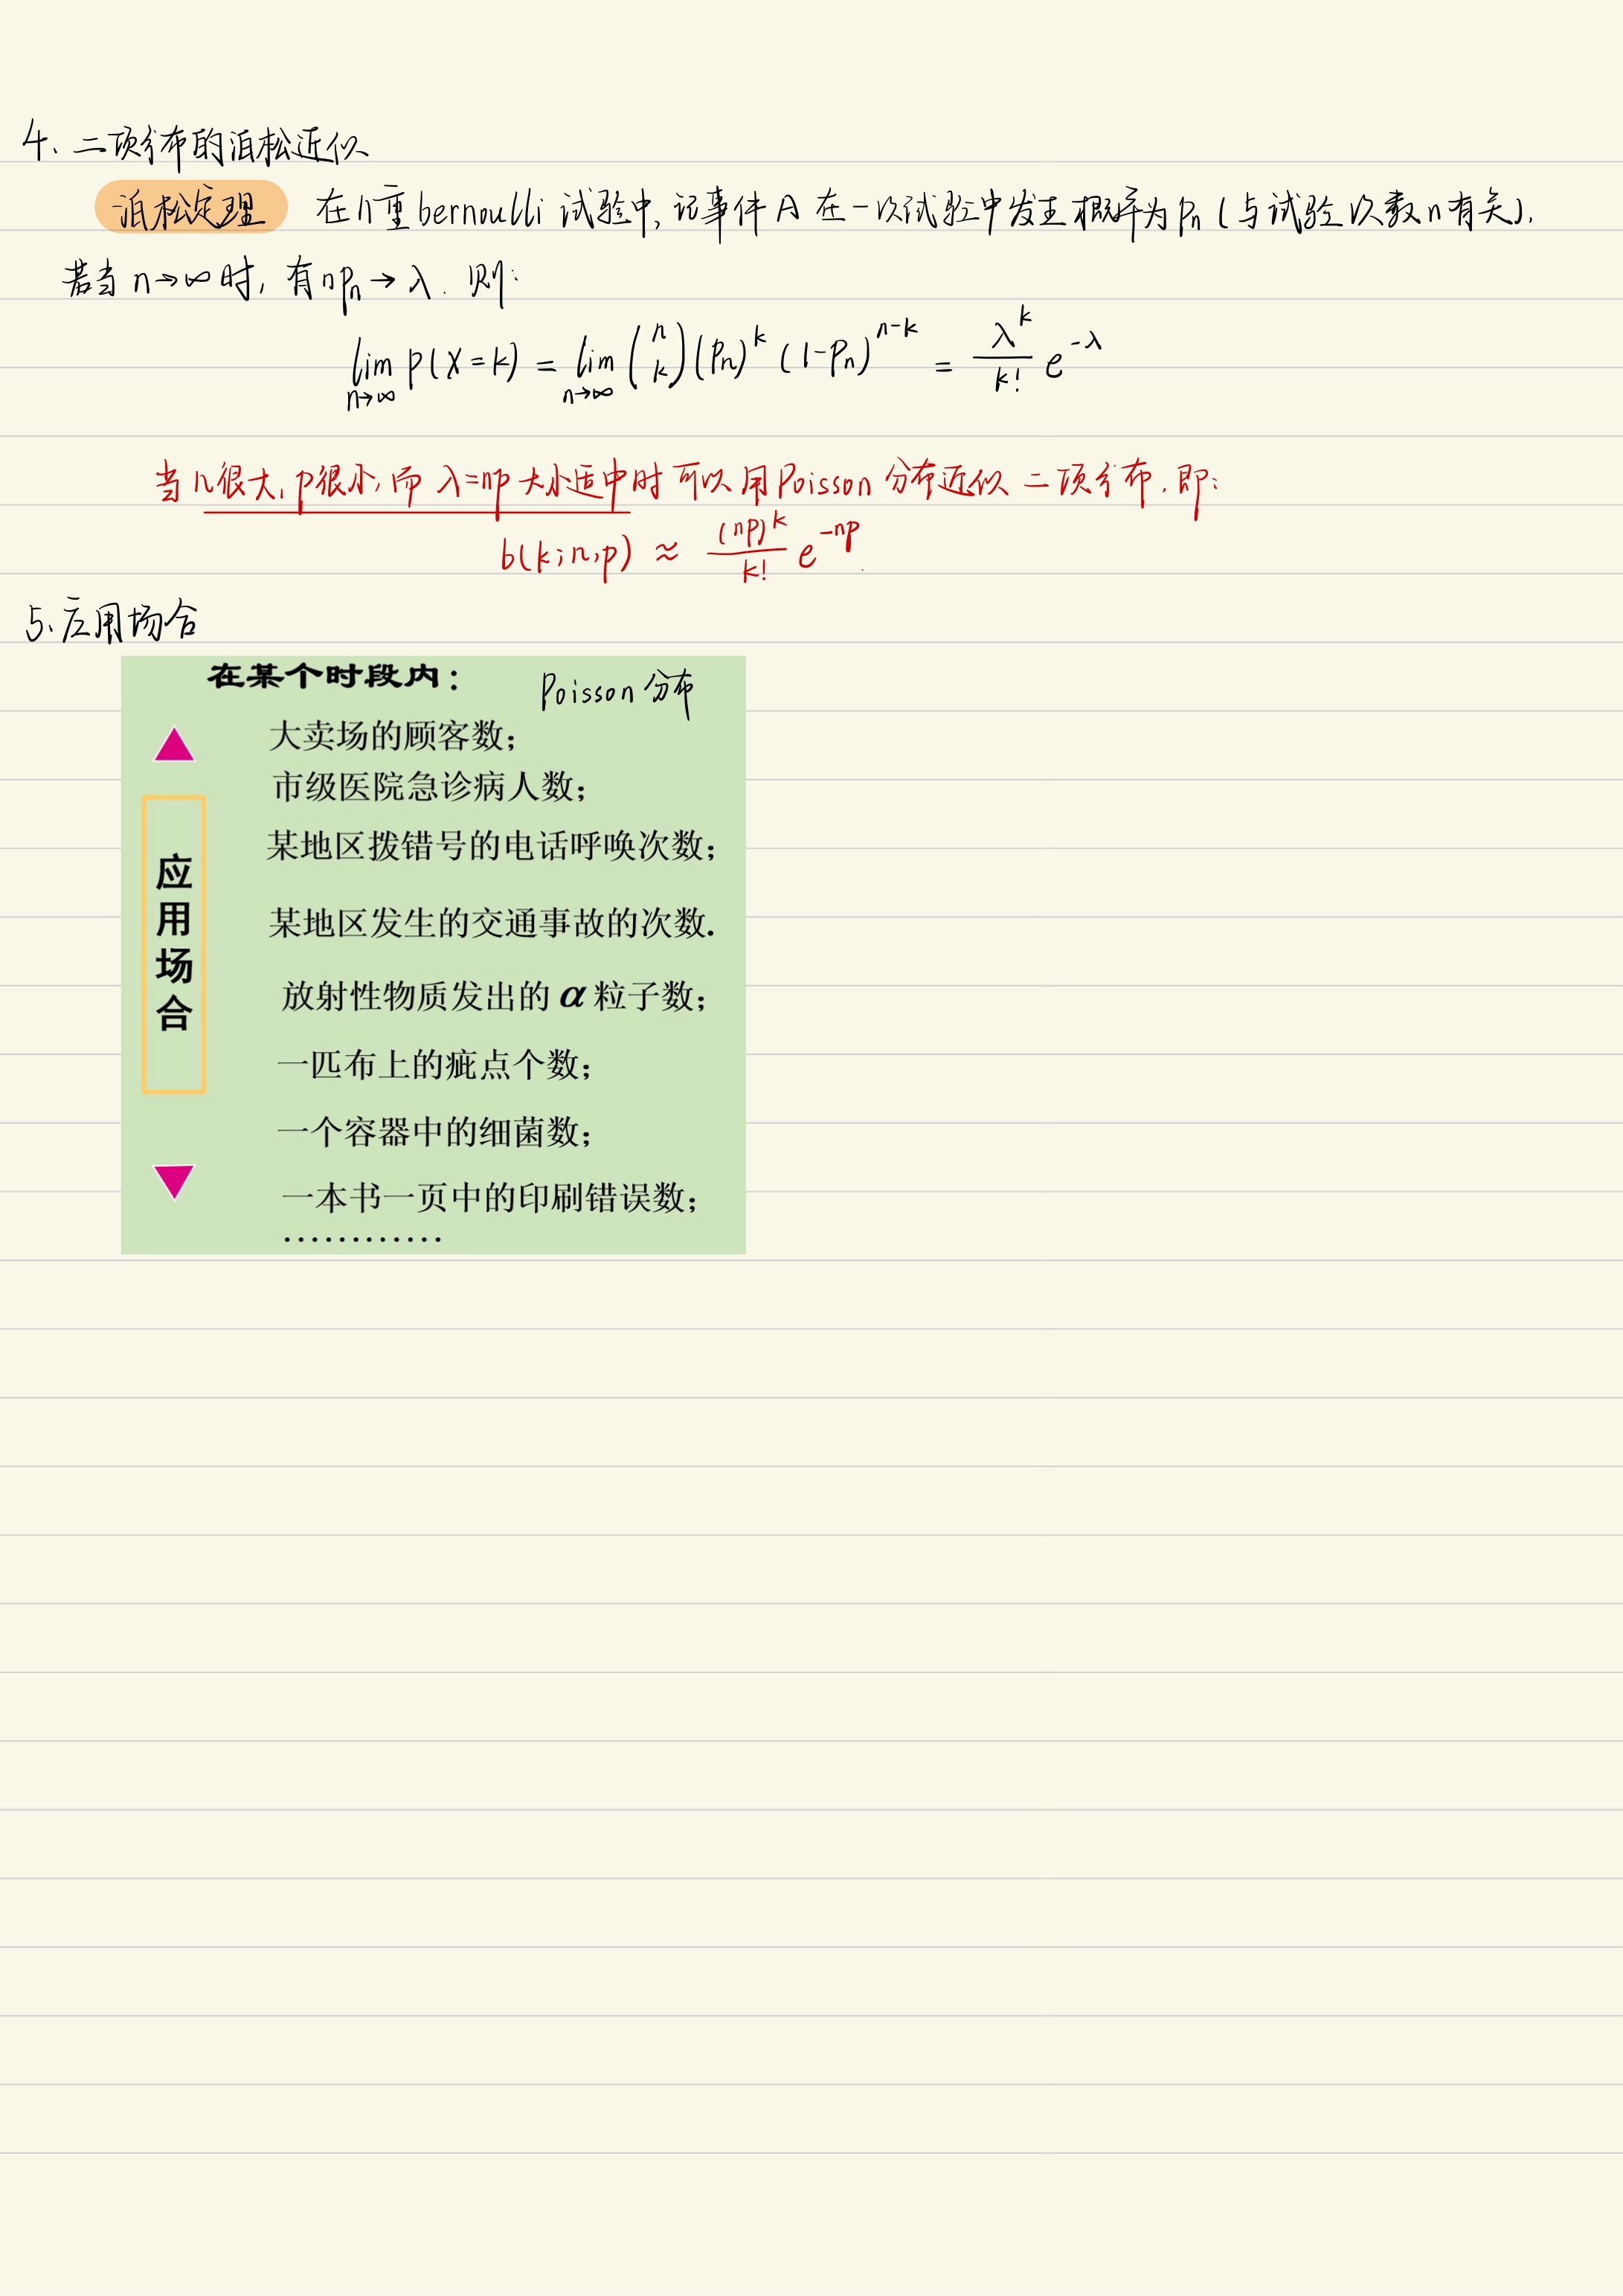 4、二项分布的泊松近似
泊松定理 在n重bernoulli试验中,记事件A在一次试验中发生概率为pₙ(与试验次数n有关),
若当n→∞时,有npₙ→λ.则:
lim_{n→∞} P(X=k) = lim_{n→∞} (n k)(pₙ)^k (1-pₙ)^{n-k} = λ^k/k! e^{-λ}
当n很大,p很小,而λ=np大小适中时可以用Poisson分布近似二项分布,即:
b(k;n,p) ≈ (np)^k/k! e^{-np}.
5、应用场合
在某个时段内: Poisson分布
大卖场的顾客数;
市级医院急诊病人数;
某地区拨错号的电话呼唤次数;
某地区发生的交通事故的次数.
放射性物质发出的α粒子数;
一匹布上的疵点个数;
一个容器中的细菌数;
一本书一页中的印刷错误数;
…………
应用场合